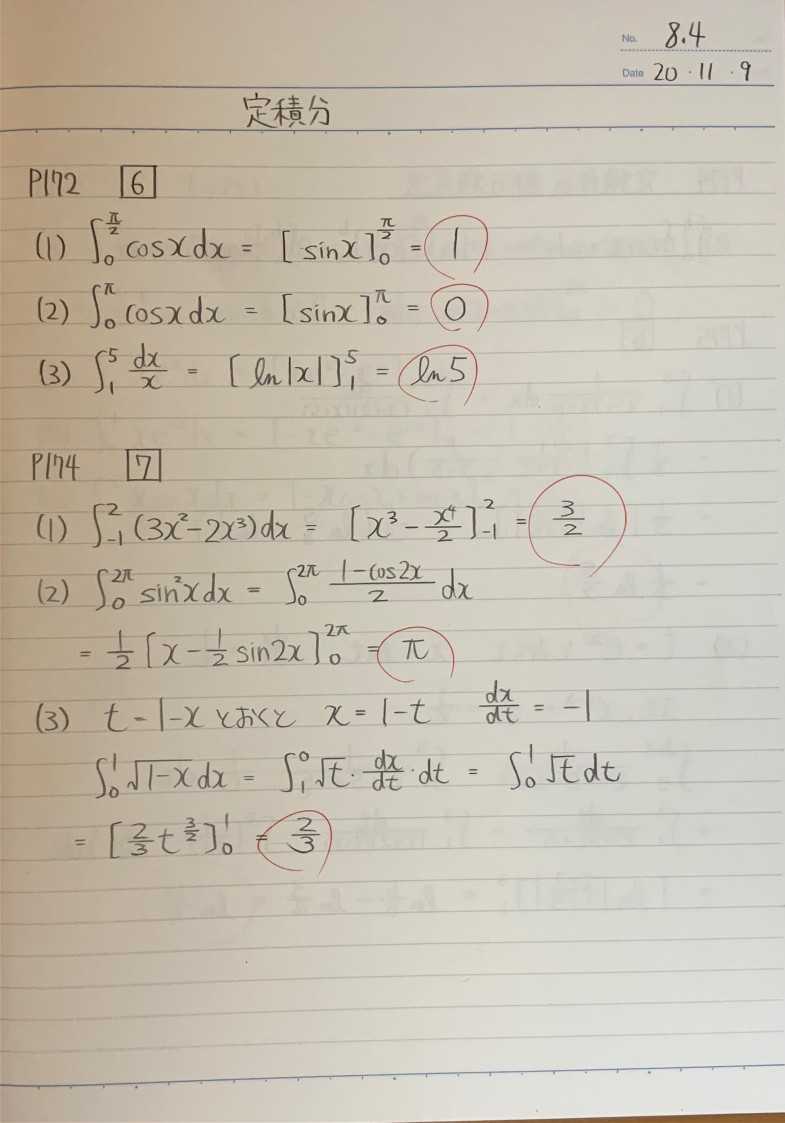 No. 8.4
Date 20・11・9
定積分
P172 6
(1) ∫₀^{π/2} cosx dx = [sinx]₀^{π/2} = 1
(2) ∫₀^{π} cosx dx = [sinx]₀^{π} = 0
(3) ∫₁^{5} dx/x = [ln|x|]₁^{5} = ln5
P174 7
(1) ∫₋₁^{2} (3x²-2x³)dx = [x³ - x⁴/2]₋₁^{2} = 3/2
(2) ∫₀^{2π} sin²x dx = ∫₀^{2π} (1-cos2x)/2 dx
= 1/2 [x - 1/2 sin2x]₀^{2π} = π
(3) t = 1-x とおくと x = 1-t dx/dt = -1
∫₀^{1} √(1-x) dx = ∫₁^{0} √t・dx/dt・dt = ∫₀^{1} √t dt
= [2/3 t^{3/2}]₀^{1} = 2/3